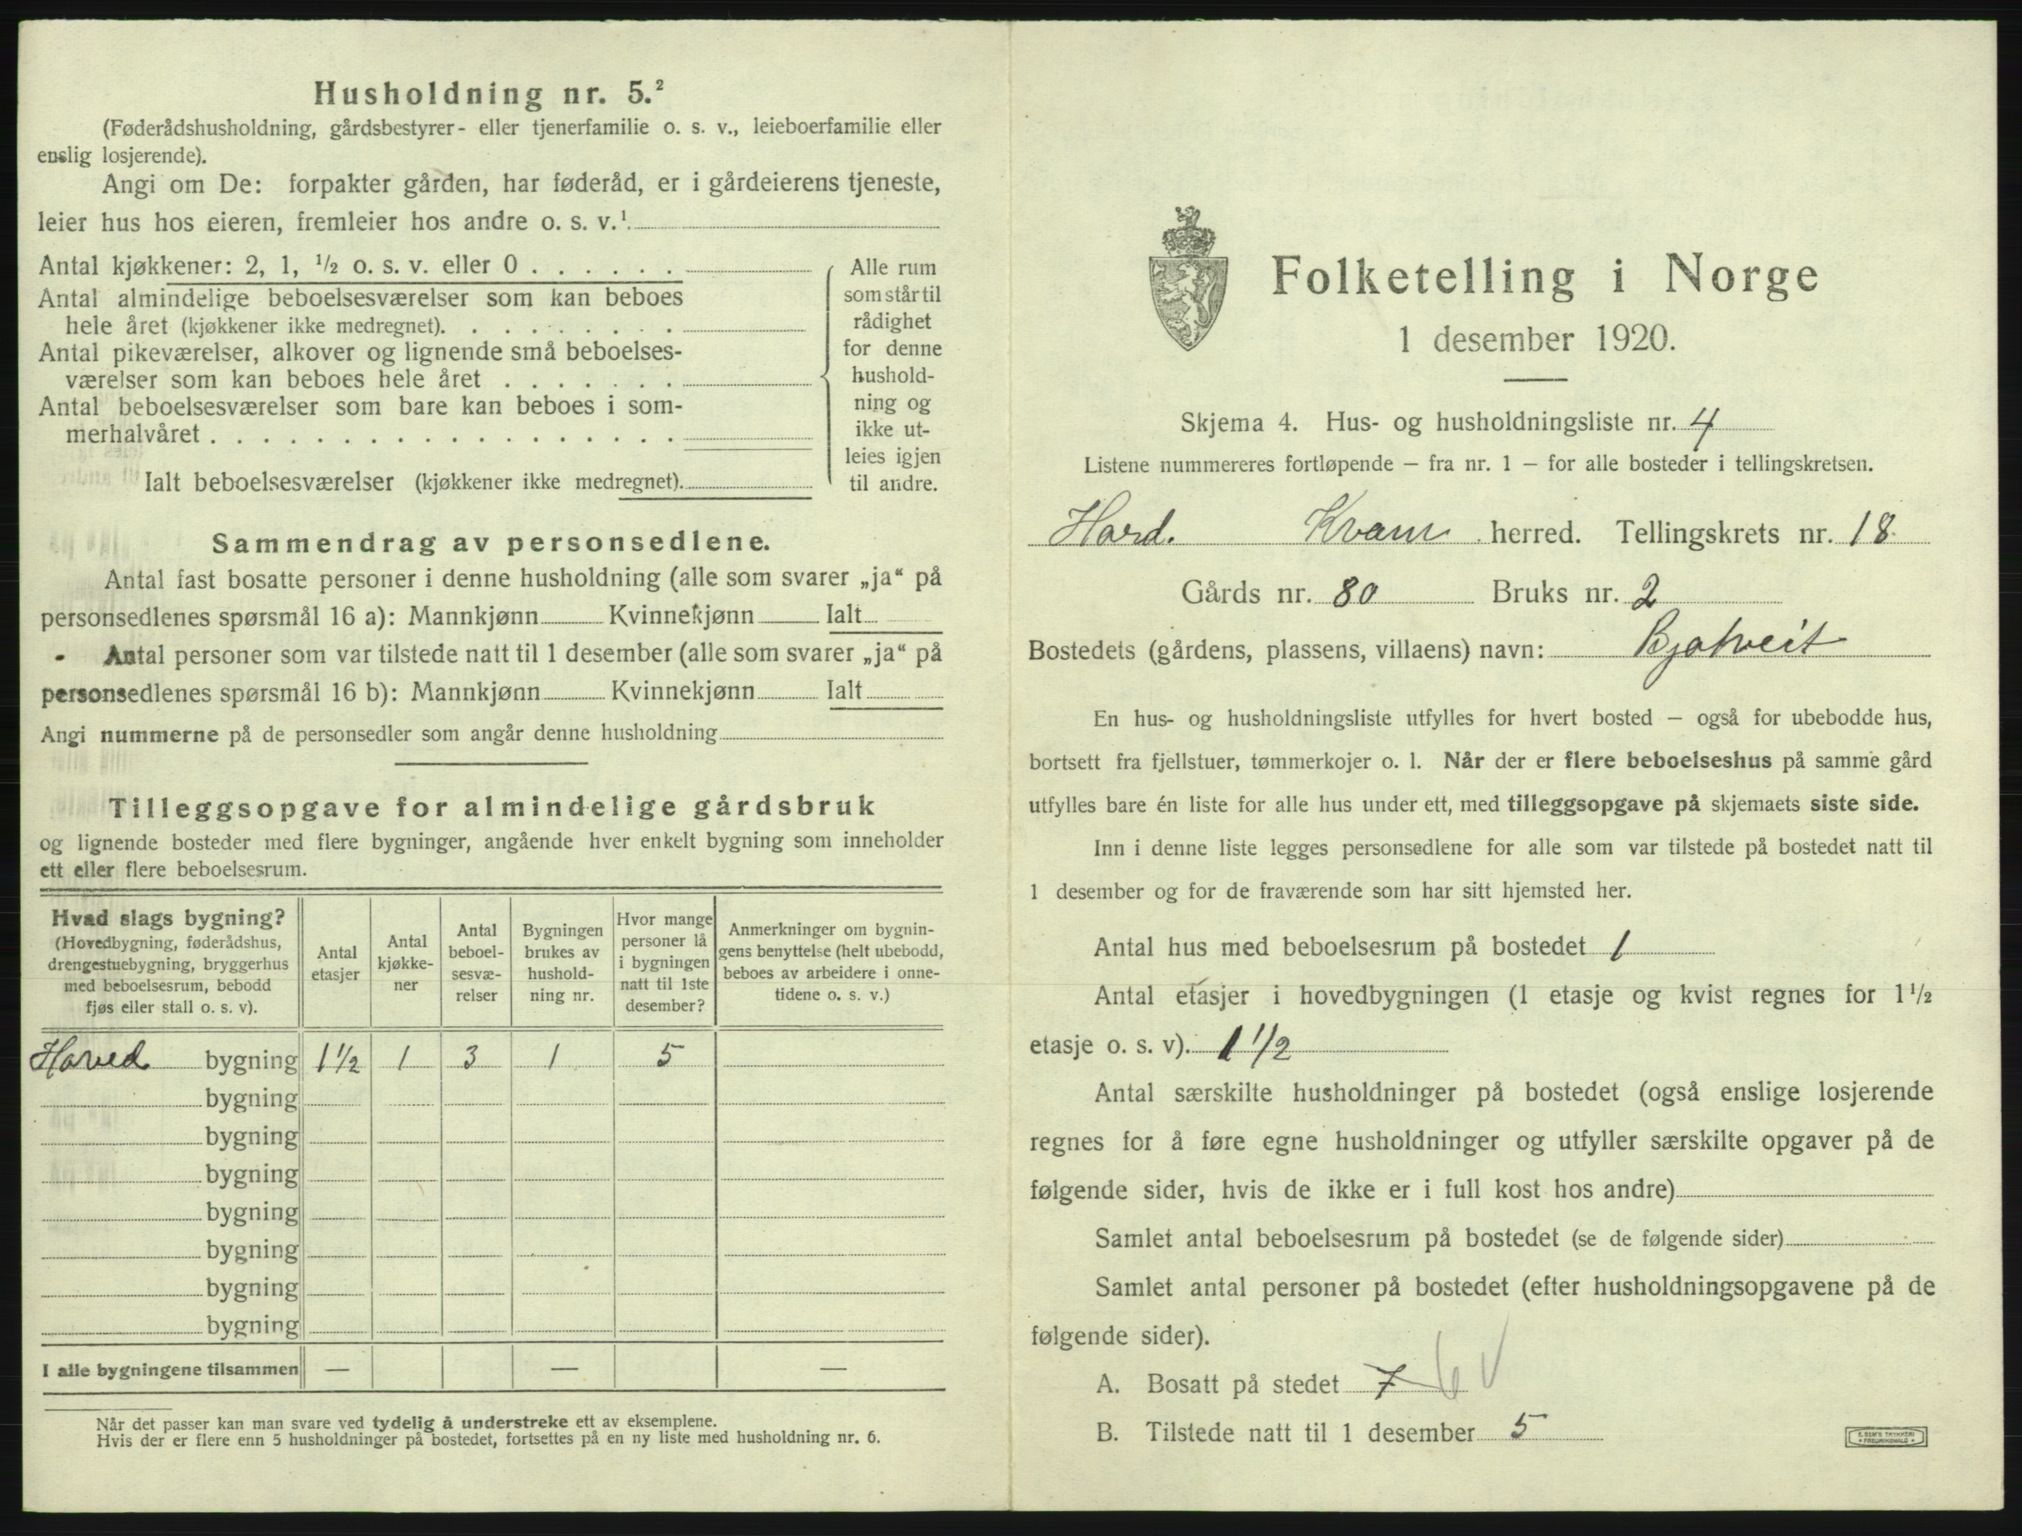 Husholdning nr. 5.²
(Føderådshusholdning, gårdsbestyrer- eller tjenerfamilie o. s. v., leieboerfamilie eller
enslig losjerende).
Angi om De: forpakter gården, har føderåd, er i gårdeierens tjeneste,
leier hus hos eieren, fremleier hos andre o. s. v.¹
Antal kjøkkener: 2, 1, ½ o. s. v. eller 0 . . . . . .
Antal almindelige beboelsesværelser som kan beboes
hele året (kjøkkener ikke medregnet). . . . . . . . .
Antal pikeværelser, alkover og lignende små beboelses-
værelser som kan beboes hele året . . . . . . .
Antal beboelsesværelser som bare kan beboes i som-
merhalvåret . . . . . . . . . . . . . . . . . .
Ialt beboelsesværelser (kjøkkener ikke medregnet).
Alle rum
som står til
rådighet
for denne
hushold-
ning og
ikke ut-
leies igjen
til andre.
Sammendrag av personsedlene.
Antal fast bosatte personer i denne husholdning (alle som svarer „ja“ på
personsedlenes spørsmål 16 a): Mannkjønn Kvinnekjønn Ialt
Antal personer som var tilstede natt til 1 desember (alle som svarer „ja“ på
personsedlenes spørsmål 16 b): Mannkjønn Kvinnekjønn Ialt
Angi nummerne på de personsedler som angår denne husholdning
Tilleggsopgave for almindelige gårdsbruk
og lignende bosteder med flere bygninger, angående hver enkelt bygning som inneholder
ett eller flere beboelsesrum.
Hvad slags bygning?
(Hovedbygning, føderådshus,
drengestuebygning, bryggerhus
med beboelsesrum, bebodd
fjøs eller stall o. s. v).
Antal
etasjer
Antal
kjøkke-
ner
Antal
beboel-
sesvæ-
relser
Bygningen
brukes av
hushold-
ning nr.
Hvor mange
personer lå
i bygningen
natt til 1ste
desember?
Anmerkninger om bygnin-
gens benyttelse (helt ubebodd,
beboes av arbeidere i onne-
tidene o. s. v.)
Hoved bygning 1½ 1 3 1 5
bygning
bygning
bygning
bygning
bygning
bygning
bygning
I alle bygningene tilsammen — — —
Når det passer kan man svare ved tydelig å understreke ett av eksemplene.
Hvis der er flere enn 5 husholdninger på bostedet, fortsettes på en ny liste med husholdning nr. 6.
Folketelling i Norge
1 desember 1920.
Skjema 4. Hus- og husholdningsliste nr. 4
Listene nummereres fortløpende – fra nr. 1 – for alle bosteder i tellingskretsen.
Hard. Kvam herred. Tellingskrets nr. 18
Gårds nr. 80 Bruks nr. 2
Bostedets (gårdens, plassens, villaens) navn:
En hus- og husholdningsliste utfylles for hvert bosted – også for ubebodde hus,
bortsett fra fjellstuer, tømmerkojer o. l. Når der er flere beboelseshus på samme gård
utfylles bare én liste for alle hus under ett, med tilleggsopgave på skjemaets siste side.
Inn i denne liste legges personsedlene for alle som var tilstede på bostedet natt til
1 desember og for de fraværende som har sitt hjemsted her.
Antal hus med beboelsesrum på bostedet 1
Antal etasjer i hovedbygningen (1 etasje og kvist regnes for 1½
etasje o. s. v). 1 1/2
Antal særskilte husholdninger på bostedet (også enslige losjerende
regnes for å føre egne husholdninger og utfyller særskilte opgaver på de
følgende sider, hvis de ikke er i full kost hos andre)
Samlet antal beboelsesrum på bostedet (se de følgende sider)
Samlet antal personer på bostedet (efter husholdningsopgavene på de
følgende sider).
A. Bosatt på stedet 7 6
B. Tilstede natt til 1 desember 5